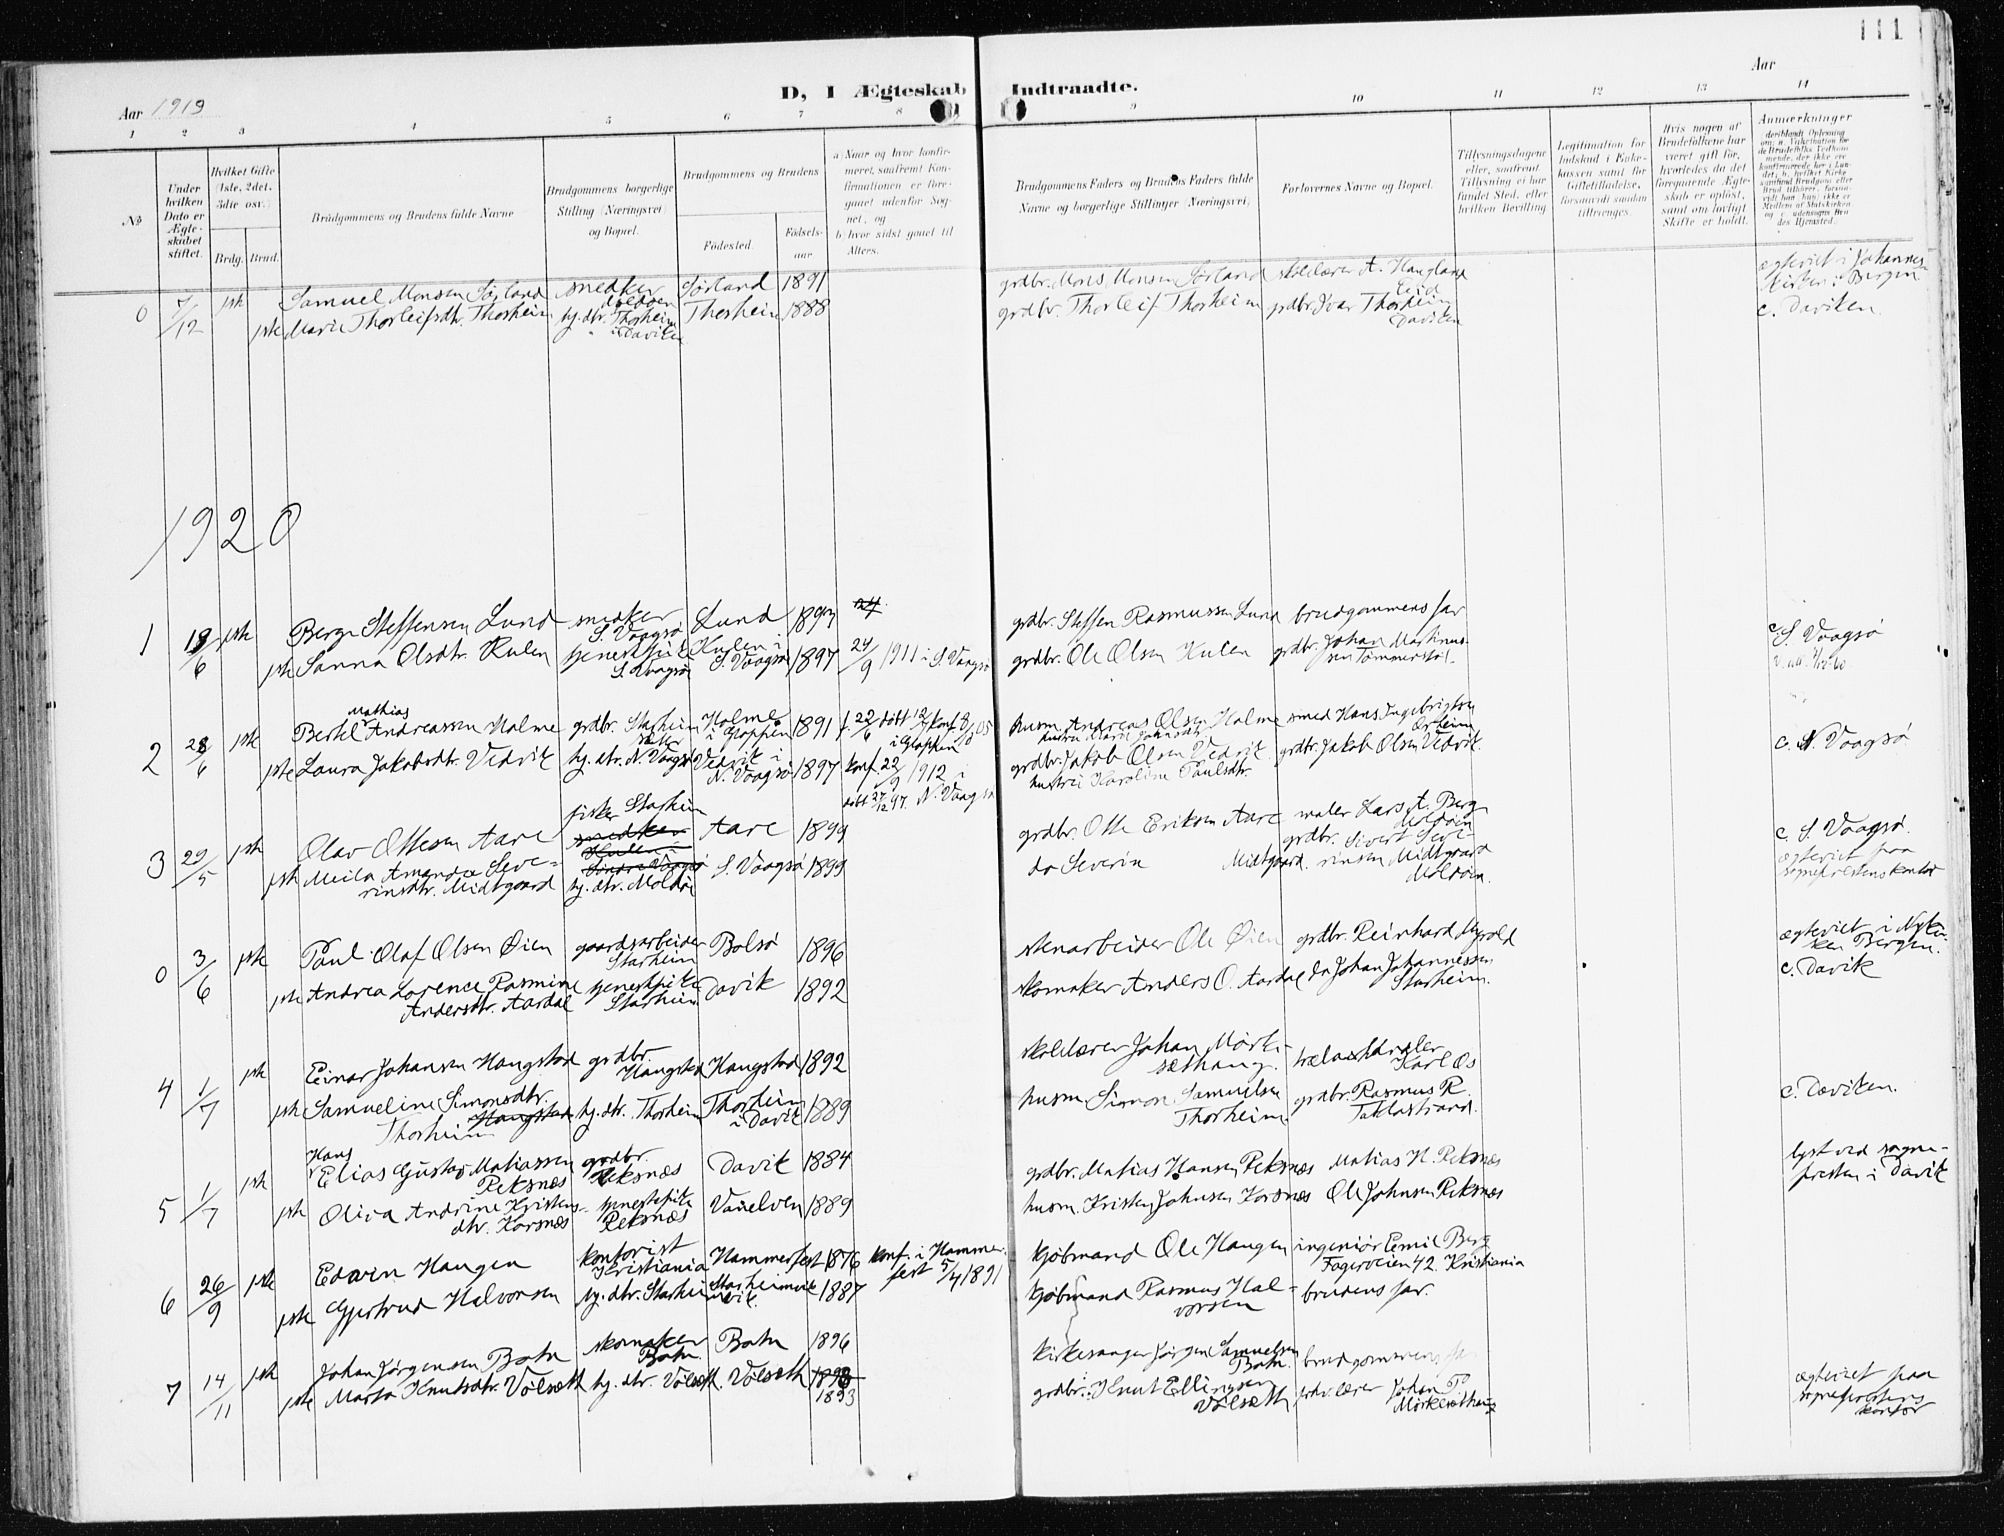 111
Aar 1919
D, I Ægteskab Indtraadte.
Aar
1 2 3 4 5 6 7 8 9 10 11 12 13 14
No.
Under hvilken Dato er Ægteskabet stiftet.
Hvilket Gifte (1ste, 2det, 3die osv.)
Brdg. Brud.
Brudgommens og Brudens fulde Navne
Brudgommens borgerlige Stilling (Næringsvei) og Bopæl.
Brudgommens og Brudens
Födested.
Födselsaar
a) Naar og hvor konfirmeret, saafremt Konfirmationen er foregaaet udenfor Sognet, og
b) hvor sidst gaaet til Alters.
Brudgommens Faders og Brudens Faders fulde Navne og borgerlige Stillinger (Næringsvei)
Forlovernes Navne og Bopæl.
Tillysningsdagene eller, saafremt Tillysning ei har fundet Sted, efter hvilken Bevilling
Legitimation for Indskud i Enkekassen samt for Giftetilladelse, forsaavidt saadan tiltrænges.
Hvis nogen af Brudefolkene har været gift før, hvorledes da det foregaaende Ægteskab er opløst, samt om lovligt Skifte er holdt.
Anmærkninger
0 7/12 1ste Samuel Monsen Sørland snedker Moldøen Sørland 1891 grdbr. Mons Monsen Sørland skolelærer A. Haugland Eid ægteviet i Johanneskirken i Bergen
1ste Marie Thorleifsdtr. Thorheim hj. dtr. Thorheim i Daviken Thorheim 1888 grdbr. Thorleif Thorheim grdbr. Ivar Thorheim Daviken c. Daviken.
1920
1 18/6 1ste Berge Steffensen Lund snedker S. Vaagsø Lund 1893 grdbr. Steffen Rasmussen Lund brudgommens far c. S. Vaagsø
1ste Sanna Olsdtr. Hulen tjenestpike S. Vaagsø Hulen i S. Vaagsø 1897 24/9 1911 i S. Vaagsø grdbr. Ole Olsen Hulen grdbr. Johan Martinussen Tømmerstøl.
2 28/6 1ste Bertel Mathias Andreassen Holme grdbr. Starheim Holme i Gloppen 1891 f. 22/6 døbt 12/7 konf. 8/10 05 i Gloppen husm. Andreas Olsen Holme smed Hans Ingebrigtsen Ørheim
1ste Laura Jakobsdtr. Vedvik hj. dtr. N. Vaagsø Vedvik i N. Vaagsø 1897 konf. 22/9 1912 i N. Vaagsø døbt 27/12 97. grdbr. Jakob Olsen Vedvik hustru Karoline Paulsdtr. grdbr. Jakob Olsen Vedvik c. N. Vaagsø
3 29/5 1ste Olav Ottesen Aare fisker Starheim Aare 1899 grdbr. Otte Eriksen Aare maler Lars A. Berg Moldøen c. S. Vaagsø.
1ste Meila Amanda Severinsdtr. Midtgaard hj. dtr. Moldøe S. Vaagsø 1899 do Severin Midtgaard. grdbr. Sivert Severinsen Midtgaard Moldøen. ægteviet paa sogneprestens kontor
0 3/6 1ste Paul Olaf Olsen Øien gaardsarbeider Starheim Bolsø 1896 stenarbeider Ole Øien grdbr. Reinhard Myrold ægteviet i Nykirken Bergen.
1ste Andrea Lorence Rasmine Andersdtr. Aardal tjenestpike Starheim Davik 1892 skomaker Anders O. Aardal do Johan Johannessen Starheim. c. Davik
4 1/7 1ste Einar Johansen Haugstad grdbr. Haugstad Haugstad 1892 skolelærer Johan Mørkesethaug. trælasthandler Karl Os
1ste Samueline Simonsdtr. Haugstad Thorheim hj. dtr. Thorheim Thorheim i Davik 1889 husm. Simon Samuelsen Thorheim grdbr. Rasmus R. Taklostrand. c. Daviken.
5 1/7 1ste Hans Elias Gustav Matiassen Reksnæs grdbr. Reksnæs Davik 1884 grdbr. Matias Hansen Reksnæs Matias H. Reksnæs lyst ved sognepresten i Davik
1ste Oliva Andrine Kristensdtr. Korsnæs tjenestpike Reksnæs Vanelven 1889 husm. Kristen Johnsen Korsnæs Ole Johnsen Reksnæs
6 26/9 1ste Edvin Haugen kontorist Kristiania Hammerfest 1876 konf. i Hammerfest 5/4 1891 kjøbmand Ole Haugen ingeniør Emil Berg Fagerveien 42 Kristiania
1ste Gjertrud Halvorsen hj. dtr. Starheim Starheimvik 1887 kjøbmand Rasmus Halvorsen brudens far.
7 14/11 1ste Johan Jørgensen Botn skomaker Botn. Botn 1896 kirkesanger Jørgen Samuelsen Botn. brudgommens far
1ste Marta Knutsdtr. Vølsæth hj. dtr. Vølsæth. Vølsæth 1898 1893 grdbr. Knut Ellingsen Vølsæth Johan P. Mørkesethaug ægteviet paa sogneprestens kontor